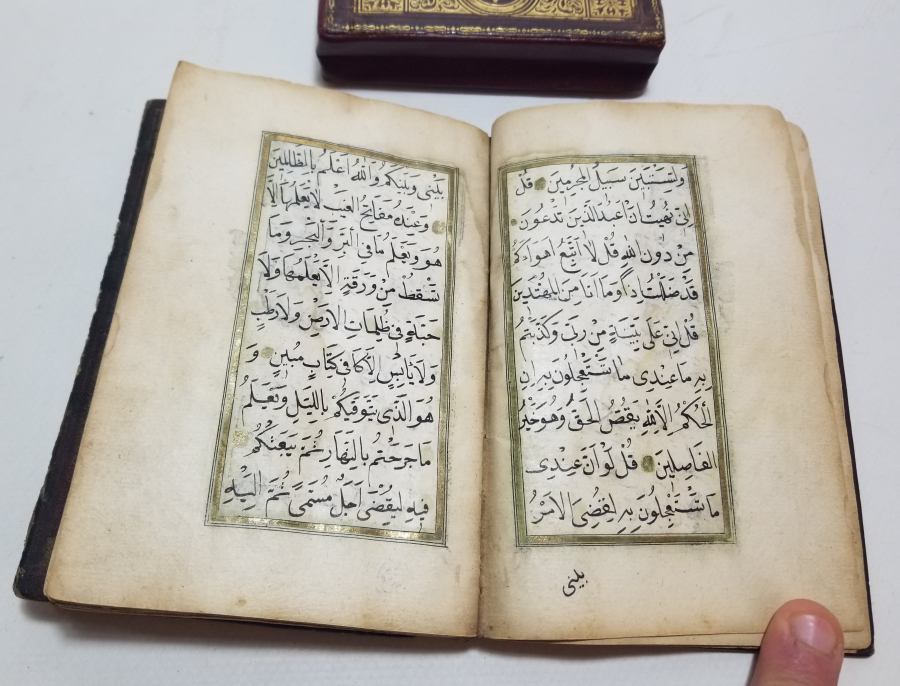 وَلِتَسْتَبِينَ سَبِيلُ الْمُجْرِمِينَ قُلْ
اِنِّى نُهِيتُ اَنْ اَعْبُدَ الَّذِينَ تَدْعُونَ
مِنْ دُونِ اللّٰهِ قُلْ لَا اَتَّبِعُ اَهْوَاءَكُمْ
قَدْ ضَلَلْتُ اِذًا وَمَا اَنَا مِنَ الْمُهْتَدِينَ
قُلْ اِنِّى عَلَى بَيِّنَةٍ مِنْ رَبِّى وَكَذَّبْتُمْ
بِهِ مَا عِنْدِى مَا تَسْتَعْجِلُونَ بِهِ اِنِ
الْحُكْمُ اِلَّا لِلّٰهِ يَقُصُّ الْحَقَّ وَهُوَ خَيْرُ
الْفَاصِلِينَ قُلْ لَوْ اَنَّ عِنْدِى
مَا تَسْتَعْجِلُونَ بِهِ لَقُضِىَ الْاَمْرُ
بينى
بَيْنِى وَبَيْنَكُمْ وَاللّٰهُ اَعْلَمُ بِالظَّالِمِينَ
وَعِنْدَهُ مَفَاتِحُ الْغَيْبِ لَا يَعْلَمُهَا اِلَّا
هُوَ وَيَعْلَمُ مَا فِى الْبَرِّ وَالْبَحْرِ وَمَا
تَسْقُطُ مِنْ وَرَقَةٍ اِلَّا يَعْلَمُهَا وَلَا
حَبَّةٍ فِى ظُلُمَاتِ الْاَرْضِ وَلَا رَطْبٍ
وَلَا يَابِسٍ اِلَّا فِى كِتَابٍ مُبِينٍ وَ
هُوَ الَّذِى يَتَوَفّٰيكُمْ بِالَّيْلِ وَيَعْلَمُ
مَا جَرَحْتُمْ بِالنَّهَارِ ثُمَّ يَبْعَثُكُمْ
فِيهِ لِيُقْضَى اَجَلٌ مُسَمًّى ثُمَّ اِلَيْهِ